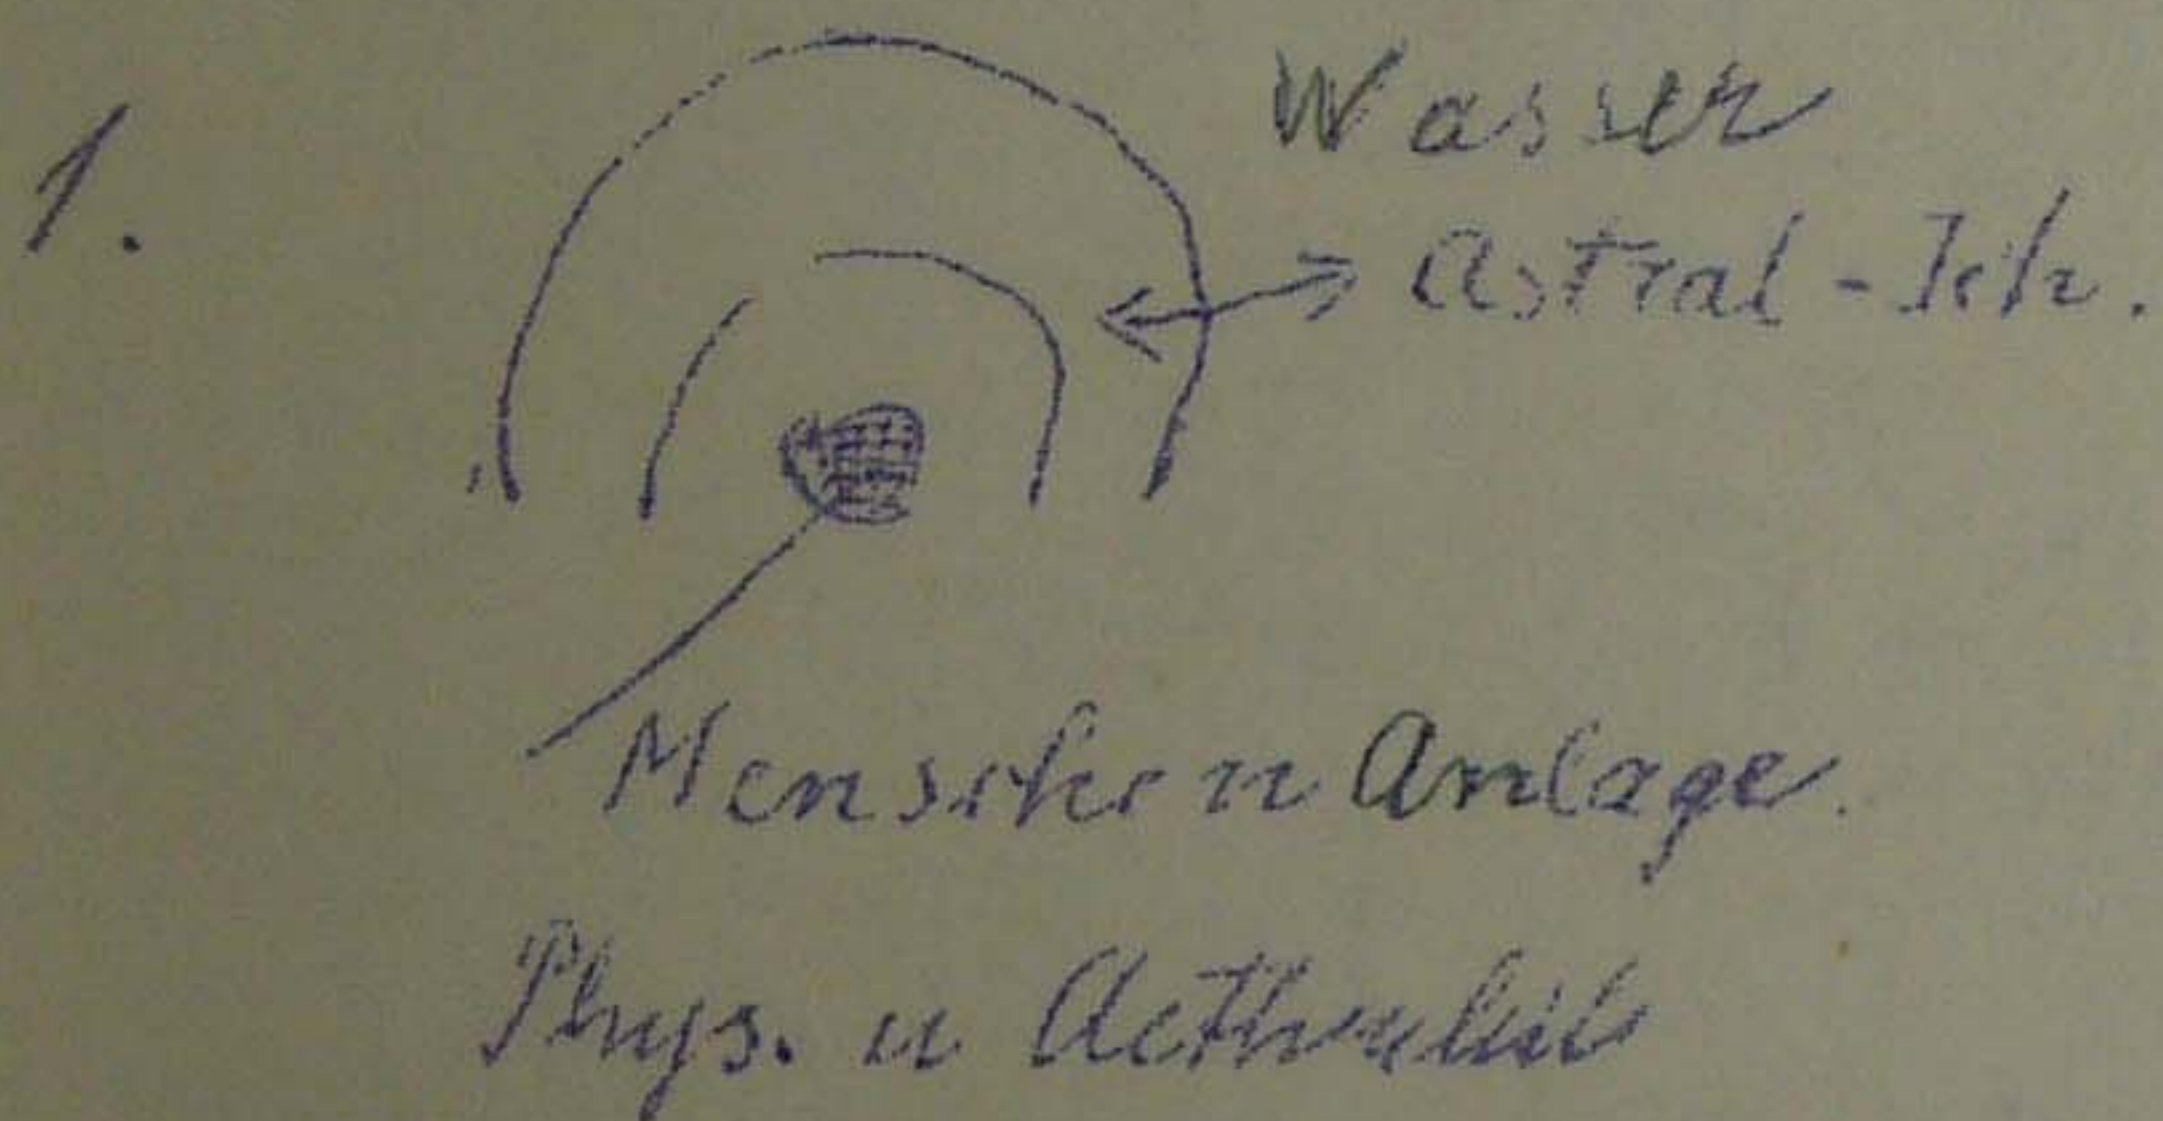 1.
Wasser
Astral-Ich.
Menschen Anlage.
Phys. u Aetherleib